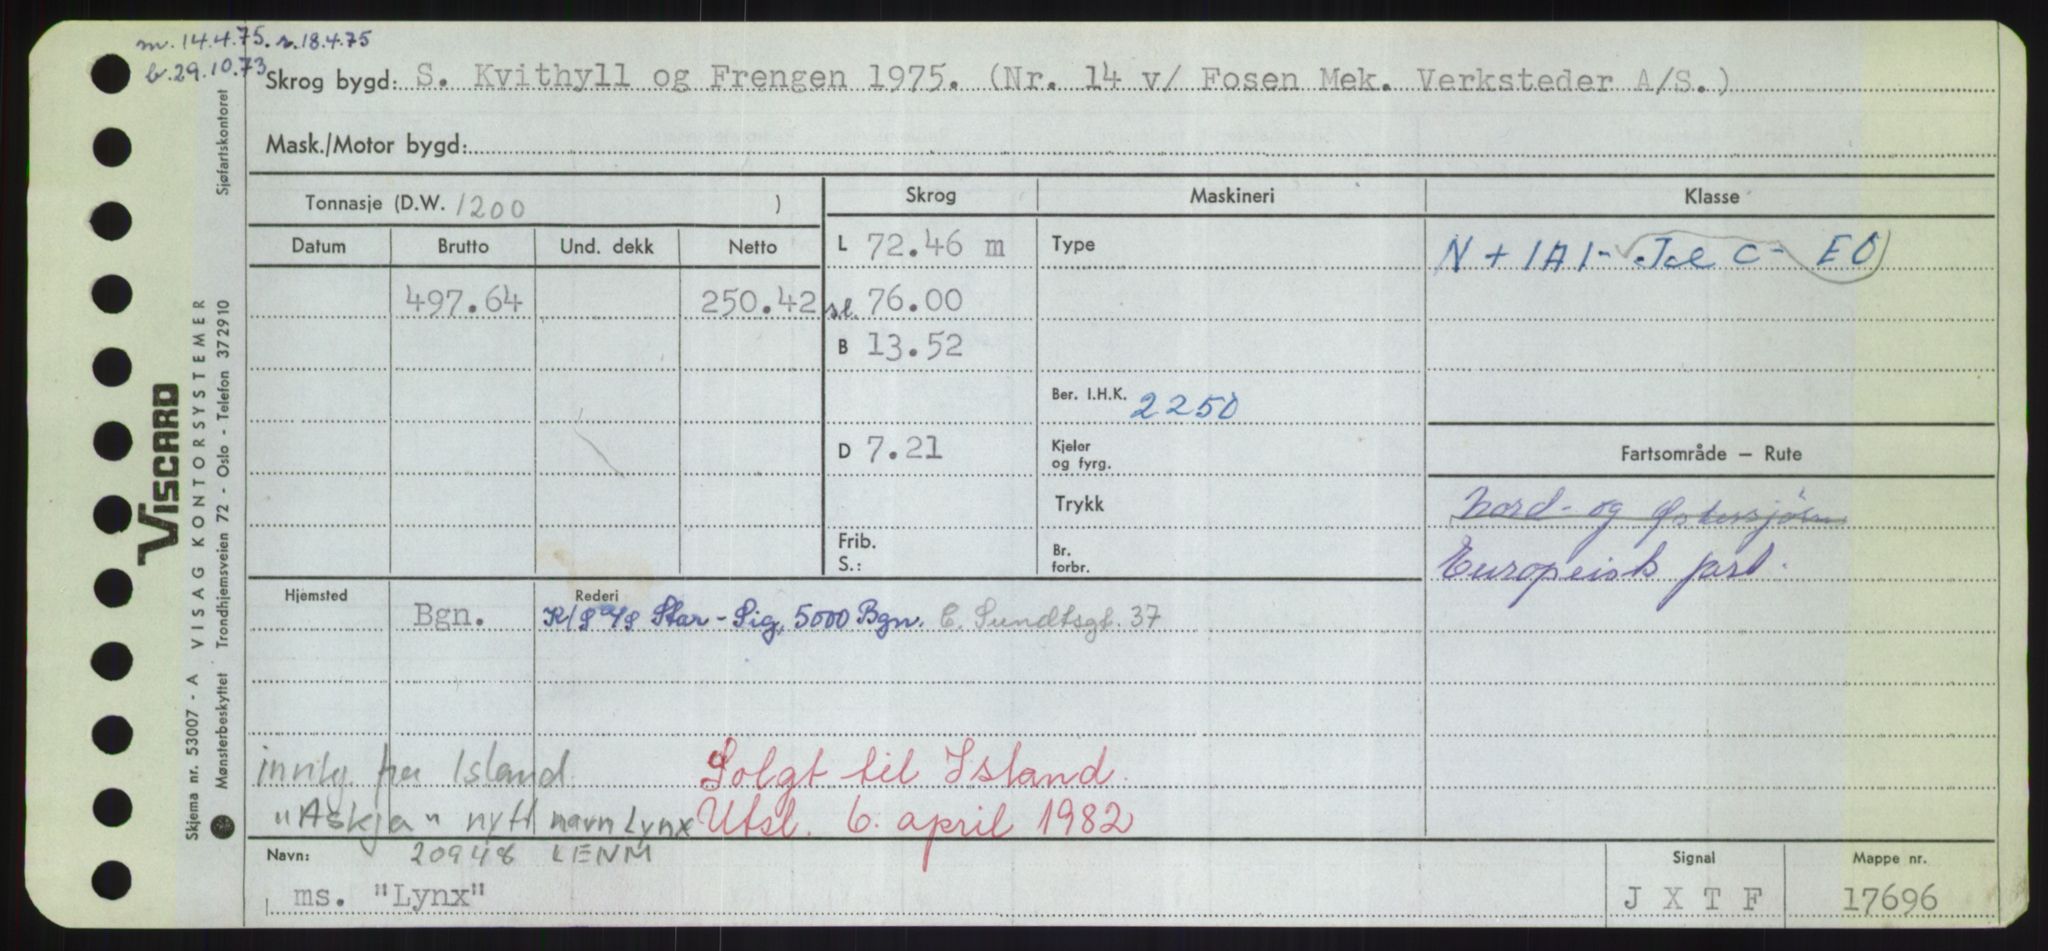 m. 14.4.75. s. 18.4.75
b. 29.10.73
Skrog bygd: S. Kvithyll og Frengen 1975. (Nr. 14 v/ Fosen Mek. Verksteder A/S.)
Mask./Motor bygd:
Tonnasje (D.W. 1200 )
Skrog Maskineri Klasse
Datum Brutto Und. dekk Netto
L 72.46 m Type N + 1A1 - Jce C - EO
497.64 250.42 sl. 76.00
B 13.52
Ber. I.H.K. 2250
D 7.21 Kjeler og fyrg. Fartsområde — Rute
Trykk Nord- og Østersjøen
Frib. S.: Br. forbr. Europeisk fart.
Hjemsted Rederi
Bgn. K/S A/S Star-Sig, 5000 Bgn. C. Sundtsgt. 37
innly fra Island Solgt til Island.
"Askja" nytt navn Lynx Utsl. 6. april 1982
20948 LENM
Navn: Signal Mappe nr.
ms. "Lynx" J X T F 17696
VISCARD
Skjema nr. 53007 - A VISAG KONTORSYSTEMER Sjøfartskontoret
Mønsterbeskyttet Trondhjemsveien 72 - Oslo - Telefon 372910